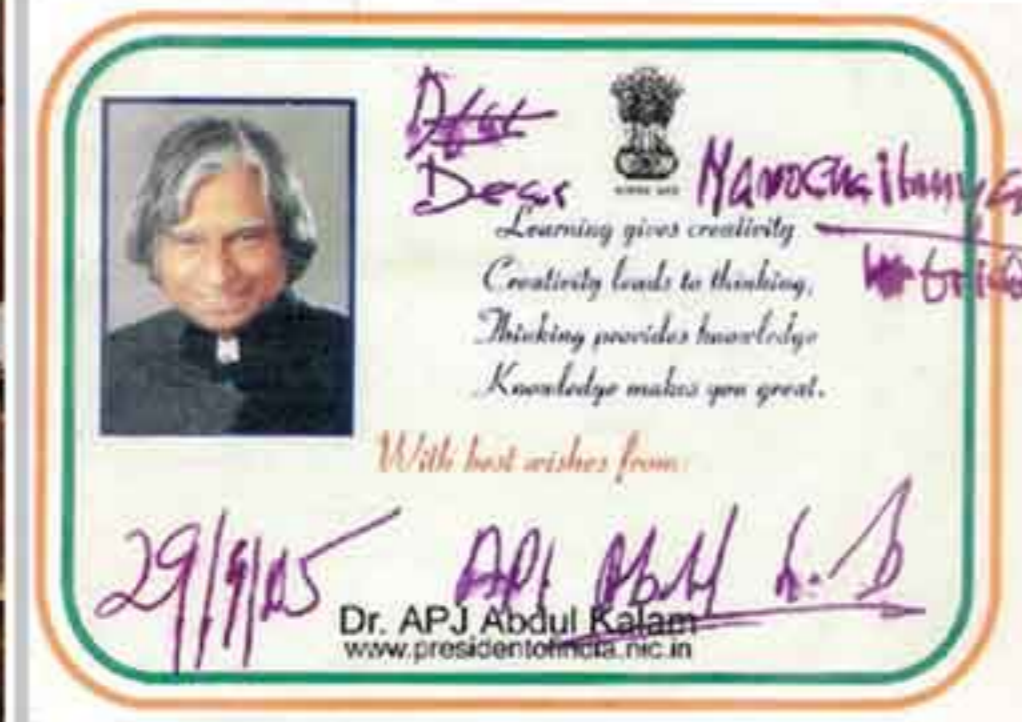 Dear
Learning gives creativity
Creativity leads to thinking,
Thinking provides knowledge
Knowledge makes you great.
With best wishes from:
29/9/05
Dr. APJ Abdul Kalam
www.presidentofindia.nic.in